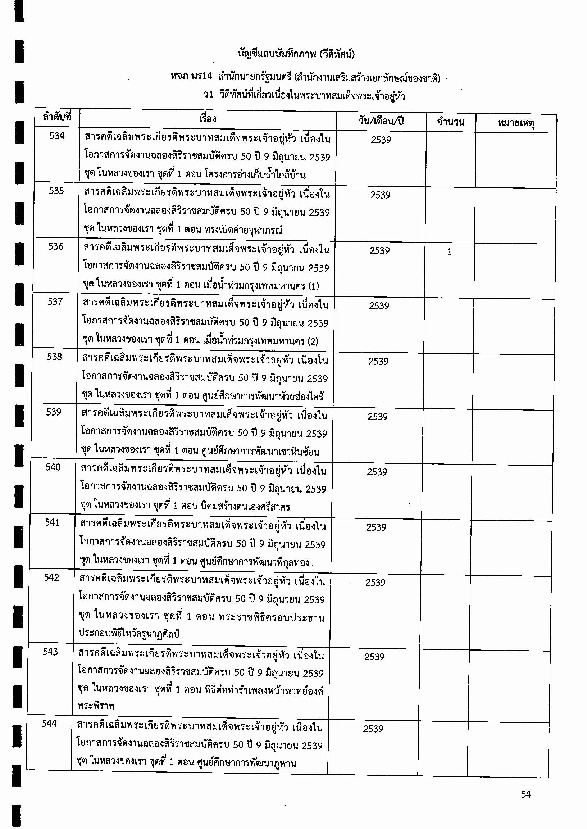 บัญชีแถบบันทึกภาพ (วีดิทัศน์)
หจภ นร14 สำนักนายกรัฐมนตรี (สำนักงานเสริมสร้างเอกลักษณ์ของชาติ)
ว1 วีดิทัศน์ที่เกี่ยวเนื่องในพระบาทสมเด็จพระเจ้าอยู่หัว
ลำดับที่ เรื่อง วัน/เดือน/ปี จำนวน หมายเหตุ
534 สารคดีเฉลิมพระเกียรติพระบาทสมเด็จพระเจ้าอยู่หัว เนื่องใน 2539
โอกาสการจัดงานฉลองสิริราชสมบัติครบ 50 ปี 9 มิถุนายน 2539
ชุด ในหลวงของเรา ชุดที่ 1 ตอน โครงการอ่างเก็บน้ำใกล้บ้าน
535 สารคดีเฉลิมพระเกียรติพระบาทสมเด็จพระเจ้าอยู่หัว เนื่องใน 2539
โอกาสการจัดงานฉลองสิริราชสมบัติครบ 50 ปี 9 มิถุนายน 2539
ชุด ในหลวงของเรา ชุดที่ 1 ตอน
536 สารคดีเฉลิมพระเกียรติพระบาทสมเด็จพระเจ้าอยู่หัว เนื่องใน 2539 1
โอกาสการจัดงานฉลองสิริราชสมบัติครบ 50 ปี 9 มิถุนายน 2539
ชุด ในหลวงของเรา ชุดที่ 1 ตอน เมื่อน้ำท่วมกรุงเทพมหานคร (1)
537 สารคดีเฉลิมพระเกียรติพระบาทสมเด็จพระเจ้าอยู่หัว เนื่องใน 2539
โอกาสการจัดงานฉลองสิริราชสมบัติครบ 50 ปี 9 มิถุนายน 2539
ชุด ในหลวงของเรา ชุดที่ 1 ตอน เมื่อน้ำท่วมกรุงเทพมหานคร (2)
538 สารคดีเฉลิมพระเกียรติพระบาทสมเด็จพระเจ้าอยู่หัว เนื่องใน 2539
โอกาสการจัดงานฉลองสิริราชสมบัติครบ 50 ปี 9 มิถุนายน 2539
ชุด ในหลวงของเรา ชุดที่ 1 ตอน ศูนย์ศึกษาการพัฒนาห้วยฮ่องไคร้
539 สารคดีเฉลิมพระเกียรติพระบาทสมเด็จพระเจ้าอยู่หัว เนื่องใน 2539
โอกาสการจัดงานฉลองสิริราชสมบัติครบ 50 ปี 9 มิถุนายน 2539
ชุด ในหลวงของเรา ชุดที่ 1 ตอน ศูนย์ศึกษาการพัฒนาเขาหินซ้อน
540 สารคดีเฉลิมพระเกียรติพระบาทสมเด็จพระเจ้าอยู่หัว เนื่องใน 2539
โอกาสการจัดงานฉลองสิริราชสมบัติครบ 50 ปี 9 มิถุนายน 2539
ชุด ในหลวงของเรา ชุดที่ 1 ตอน นิคมสร้างตนเองศรีสาคร
541 สารคดีเฉลิมพระเกียรติพระบาทสมเด็จพระเจ้าอยู่หัว เนื่องใน 2539
โอกาสการจัดงานฉลองสิริราชสมบัติครบ 50 ปี 9 มิถุนายน 2539
ชุด ในหลวงของเรา ชุดที่ 1 ตอน ศูนย์ศึกษาการพัฒนาพิกุลทอง
542 สารคดีเฉลิมพระเกียรติพระบาทสมเด็จพระเจ้าอยู่หัว เนื่องใน 2539
โอกาสการจัดงานฉลองสิริราชสมบัติครบ 50 ปี 9 มิถุนายน 2539
ชุด ในหลวงของเรา ชุดที่ 1 ตอน พระราชพิธีครอบประธาน
ประกอบพิธีไหว้ครูนาฏศิลป์
543 สารคดีเฉลิมพระเกียรติพระบาทสมเด็จพระเจ้าอยู่หัว เนื่องใน 2539
โอกาสการจัดงานฉลองสิริราชสมบัติครบ 50 ปี 9 มิถุนายน 2539
ชุด ในหลวงของเรา ชุดที่ 1 ตอน พิธีต่อท่ารำเพลงหน้าพาทย์องค์
พระพิราพ
544 สารคดีเฉลิมพระเกียรติพระบาทสมเด็จพระเจ้าอยู่หัว เนื่องใน 2539
โอกาสการจัดงานฉลองสิริราชสมบัติครบ 50 ปี 9 มิถุนายน 2539
ชุด ในหลวงของเรา ชุดที่ 1 ตอน ศูนย์ศึกษาการพัฒนาภูพาน
54